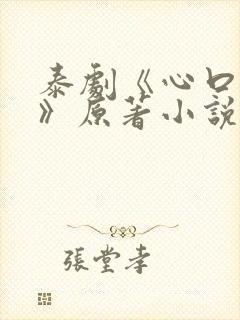 泰劇《心口
》原著小說
張堂幸